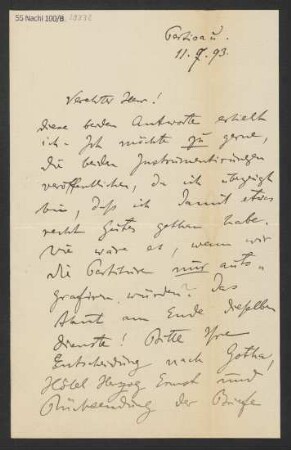 55 Nachl 100/B,
Pertisau.
11. 7. 93.
Verehrter Herr!
diese beiden Antworten erhielt
ich. Ich möchte zu gerne,
die beiden Instrumentirungen
veröffentlichen, da ich überzeugt
bin, daß ich damit etwas
recht Gutes gethan habe.
Wie wäre es, wenn wir
die Partituren nur auto-
grafiren würden? Das
thut am Ende dieselben
dienste! Bitte Ihre
Entscheidung nach Gotha,
Hôtel Herzog Ernst und
Rücksendung der Briefe